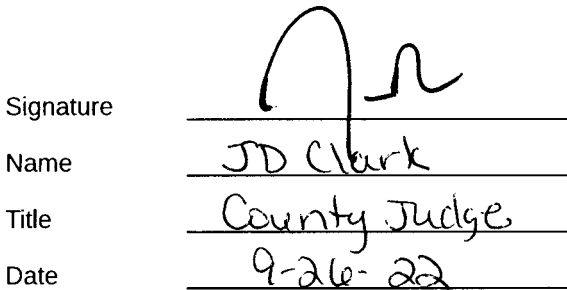 Signature
Name JD Clark
Title County Judge
Date 9-26-22